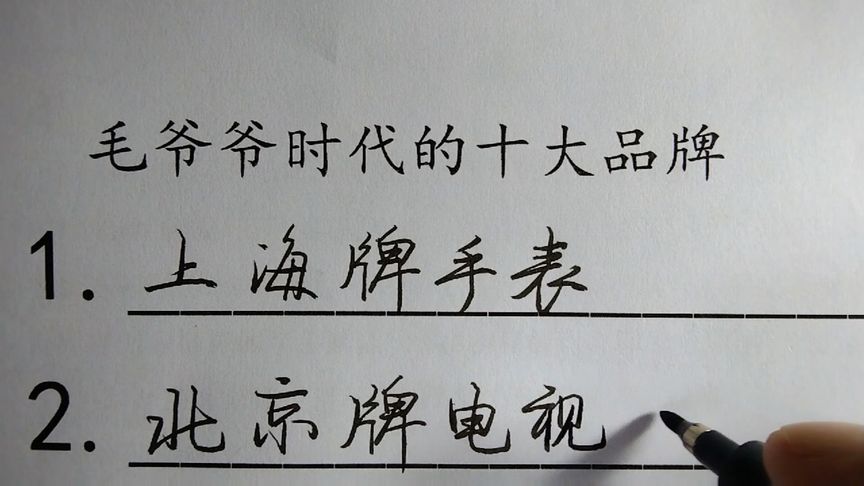 毛爷爷时代的十大品牌
1. 上海牌手表
2. 北京牌电视